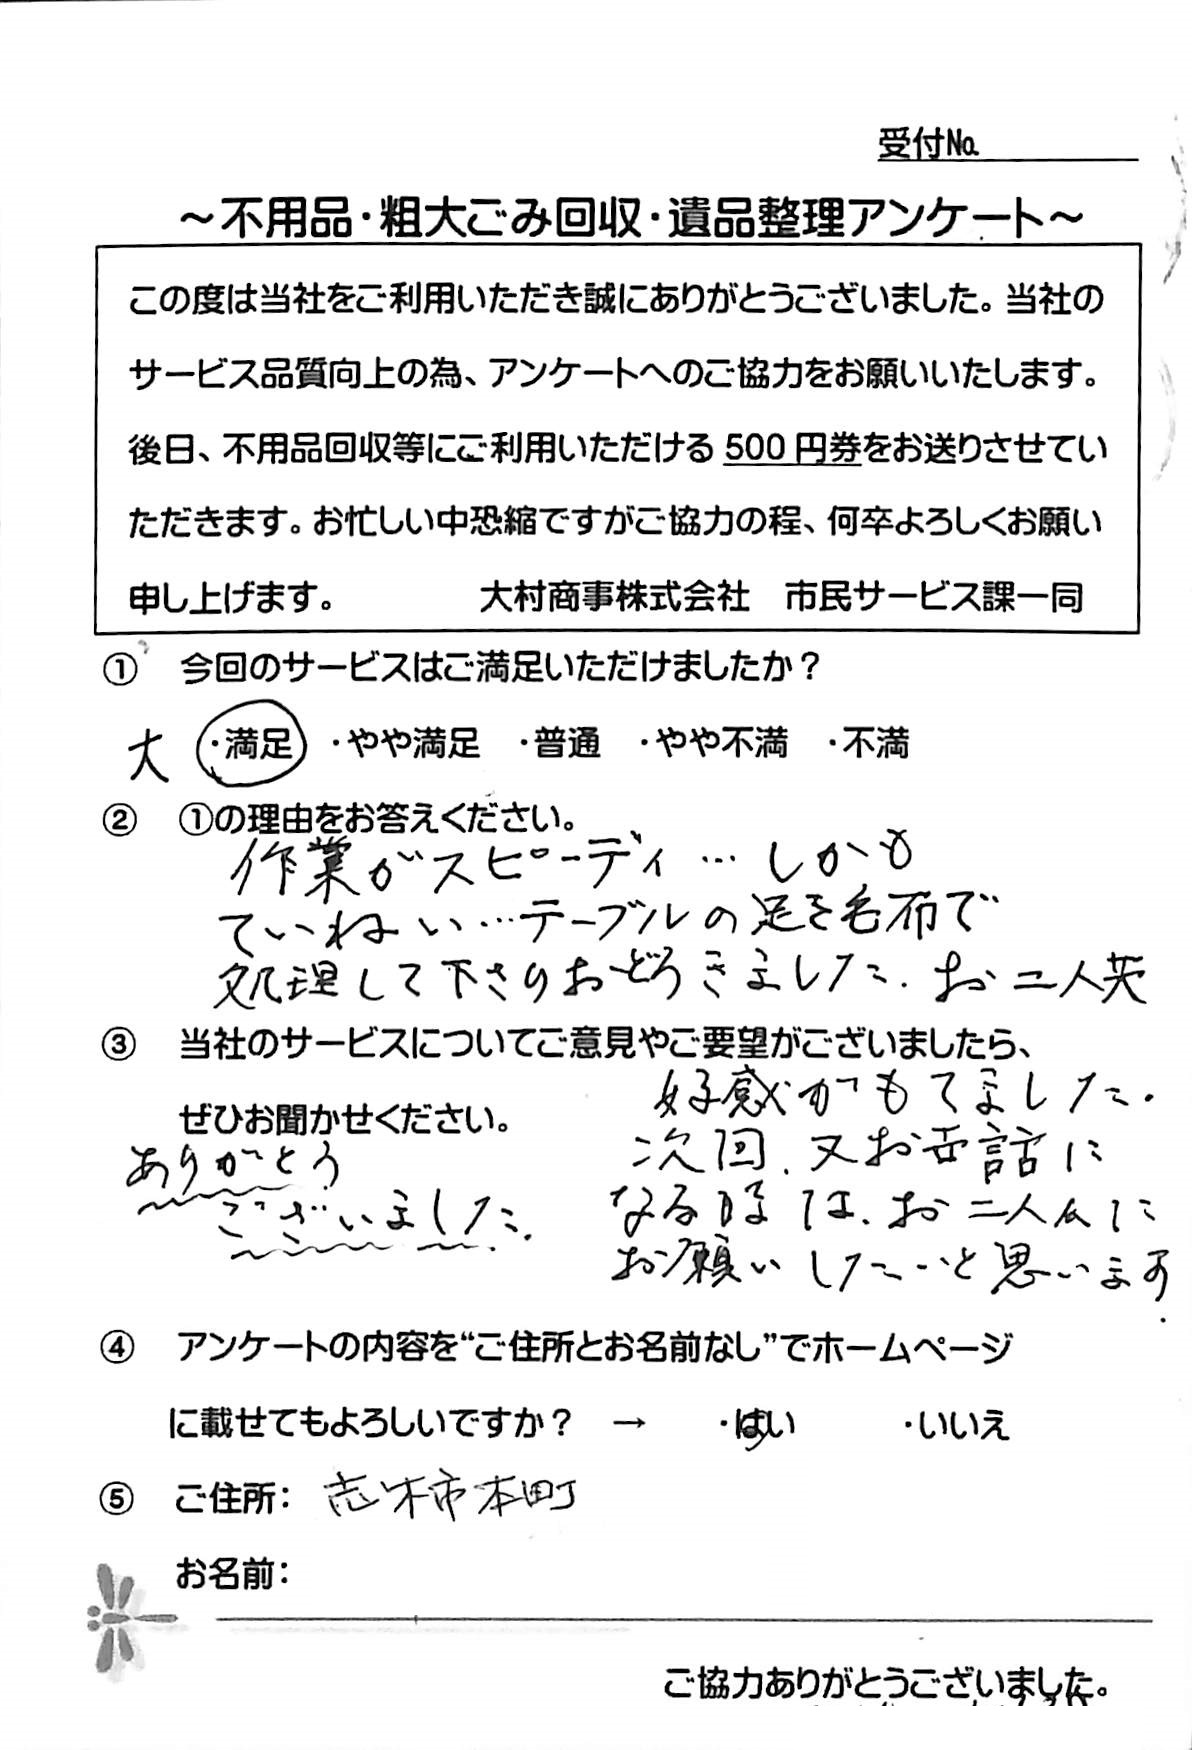 受付No.
～不用品・粗大ごみ回収・遺品整理アンケート～
この度は当社をご利用いただき誠にありがとうございました。当社の
サービス品質向上の為、アンケートへのご協力をお願いいたします。
後日、不用品回収等にご利用いただける 500 円券をお送りさせてい
ただきます。お忙しい中恐縮ですがご協力の程、何卒よろしくお願い
申し上げます。 大村商事株式会社 市民サービス課一同
① 今回のサービスはご満足いただけましたか？
大 ・満足 ・やや満足 ・普通 ・やや不満 ・不満
② ①の理由をお答えください。
作業がスピーディ…しかも
ていねい…テーブルの足を毛布で
処理して下さりおどろきました。お二人共
③ 当社のサービスについてご意見やご要望がございましたら、
好感がもてました。
ぜひお聞かせください。
ありがとう
ございました。
次回、又お世話に
なる時は、お二人に
お願いしたいと思います
。
④ アンケートの内容を“ご住所とお名前なし”でホームページ
に載せてもよろしいですか？ → ・はい ・いいえ
⑤ ご住所： 志木市本町
お名前：
ご協力ありがとうございました。